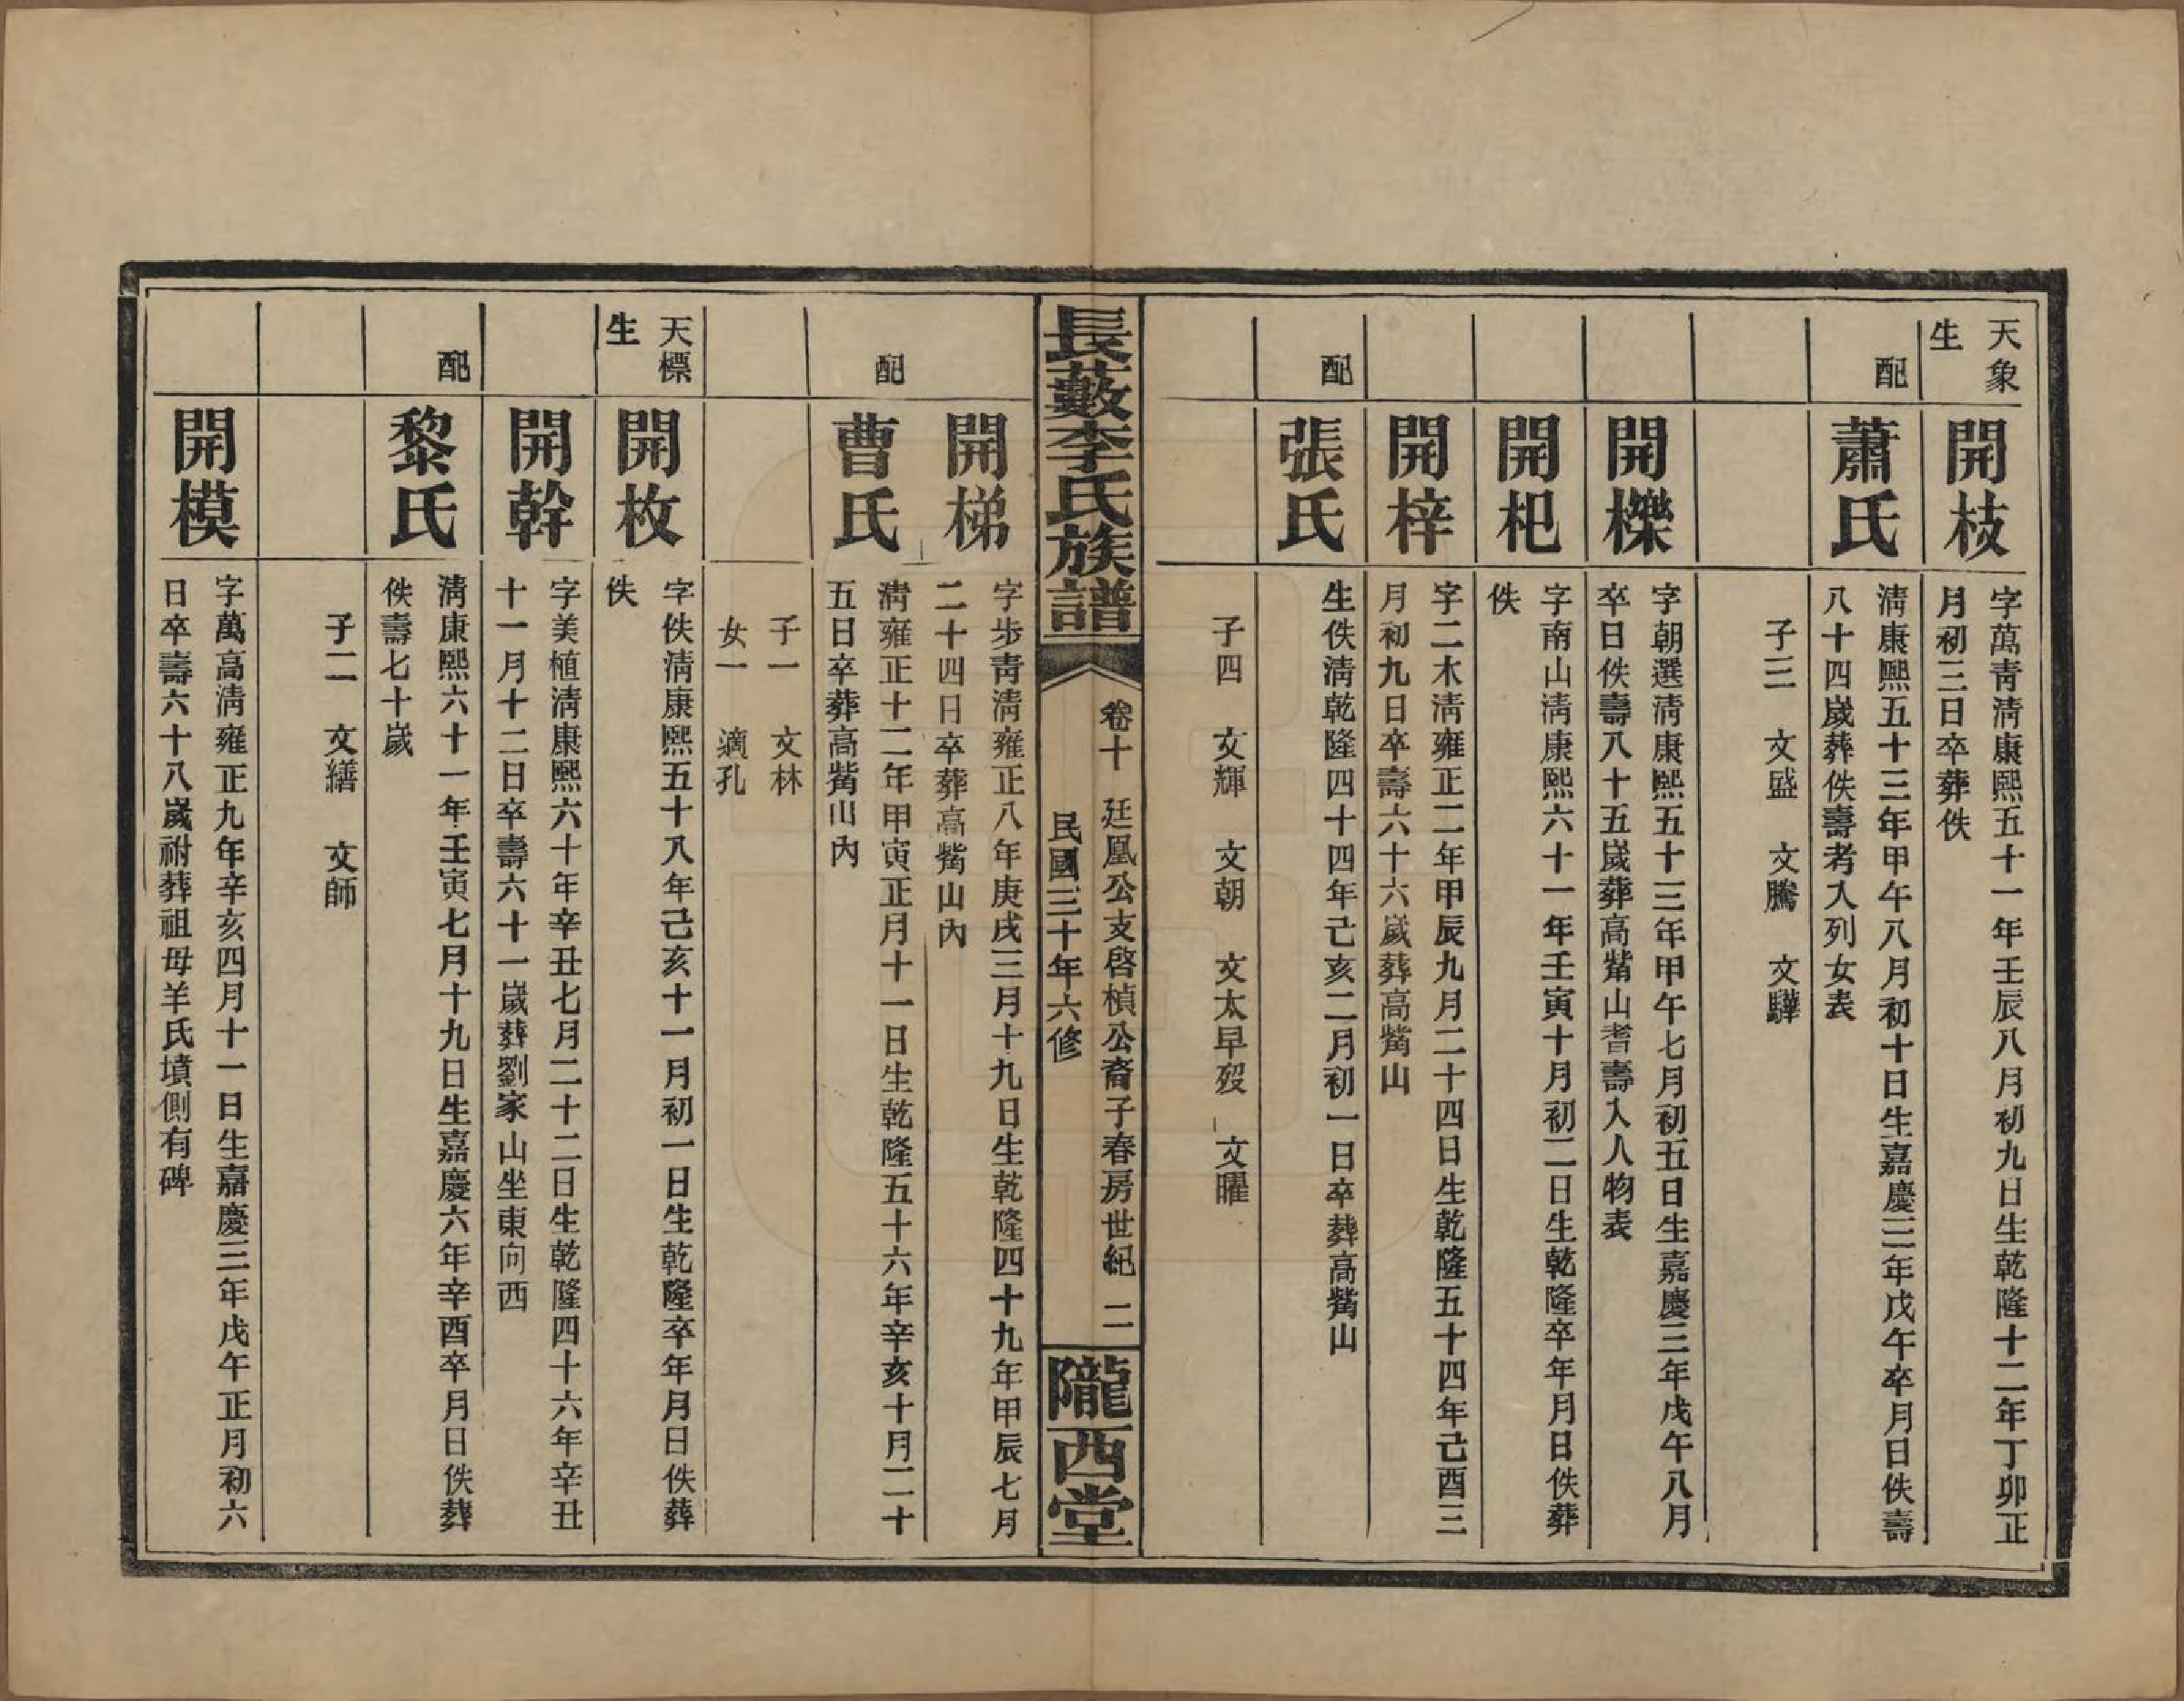 天象
生
開枝
字萬青清康熙五十一年壬辰八月初九日生乾隆十二年丁卯正
月初三日卒葬佚
配
蕭氏
清康熙五十三年甲午八月初十日生嘉慶三年戊午卒月日佚壽
八十四歲葬佚壽考入列女表
子三 文盛 文騰 文驊
開櫟
字朝選清康熙五十三年甲午七月初五日生嘉慶三年戊午八月
卒日佚壽八十五歲葬高觜山耆壽入人物表
開杞
字南山清康熙六十一年壬寅十月初二日生乾隆卒年月日佚葬
佚
開梓
字二木清雍正二年甲辰九月二十四日生乾隆五十四年己酉三
月初九日卒壽六十六歲葬高觜山
配
張氏
生佚清乾隆四十四年己亥二月初一日卒葬高觜山
子四 文輝 文朝 文太早歿 文曜
長薮李氏族譜
卷十 廷凰公支啓楨公裔子春房世紀 二
民國三十年六修
隴西堂
開梯
字步青清雍正八年庚戌三月十九日生乾隆四十九年甲辰七月
二十四日卒葬高觜山內
配
曹氏
清雍正十二年甲寅正月十一日生乾隆五十六年辛亥十月二十
五日卒葬高觜山內
子一 文林
女一 適孔
天標
生
開枚
字佚清康熙五十八年己亥十一月初一日生乾隆卒年月日佚葬
佚
開幹
字美植清康熙六十年辛丑七月二十二日生乾隆四十六年辛丑
十一月十二日卒壽六十一歲葬劉家山坐東向西
配
黎氏
清康熙六十一年壬寅七月十九日生嘉慶六年辛酉卒月日佚葬
佚壽七十歲
子二 文繕 文師
開模
字萬高清雍正九年辛亥四月十一日生嘉慶三年戊午正月初六
日卒壽六十八歲祔葬祖母羊氏墳側有碑